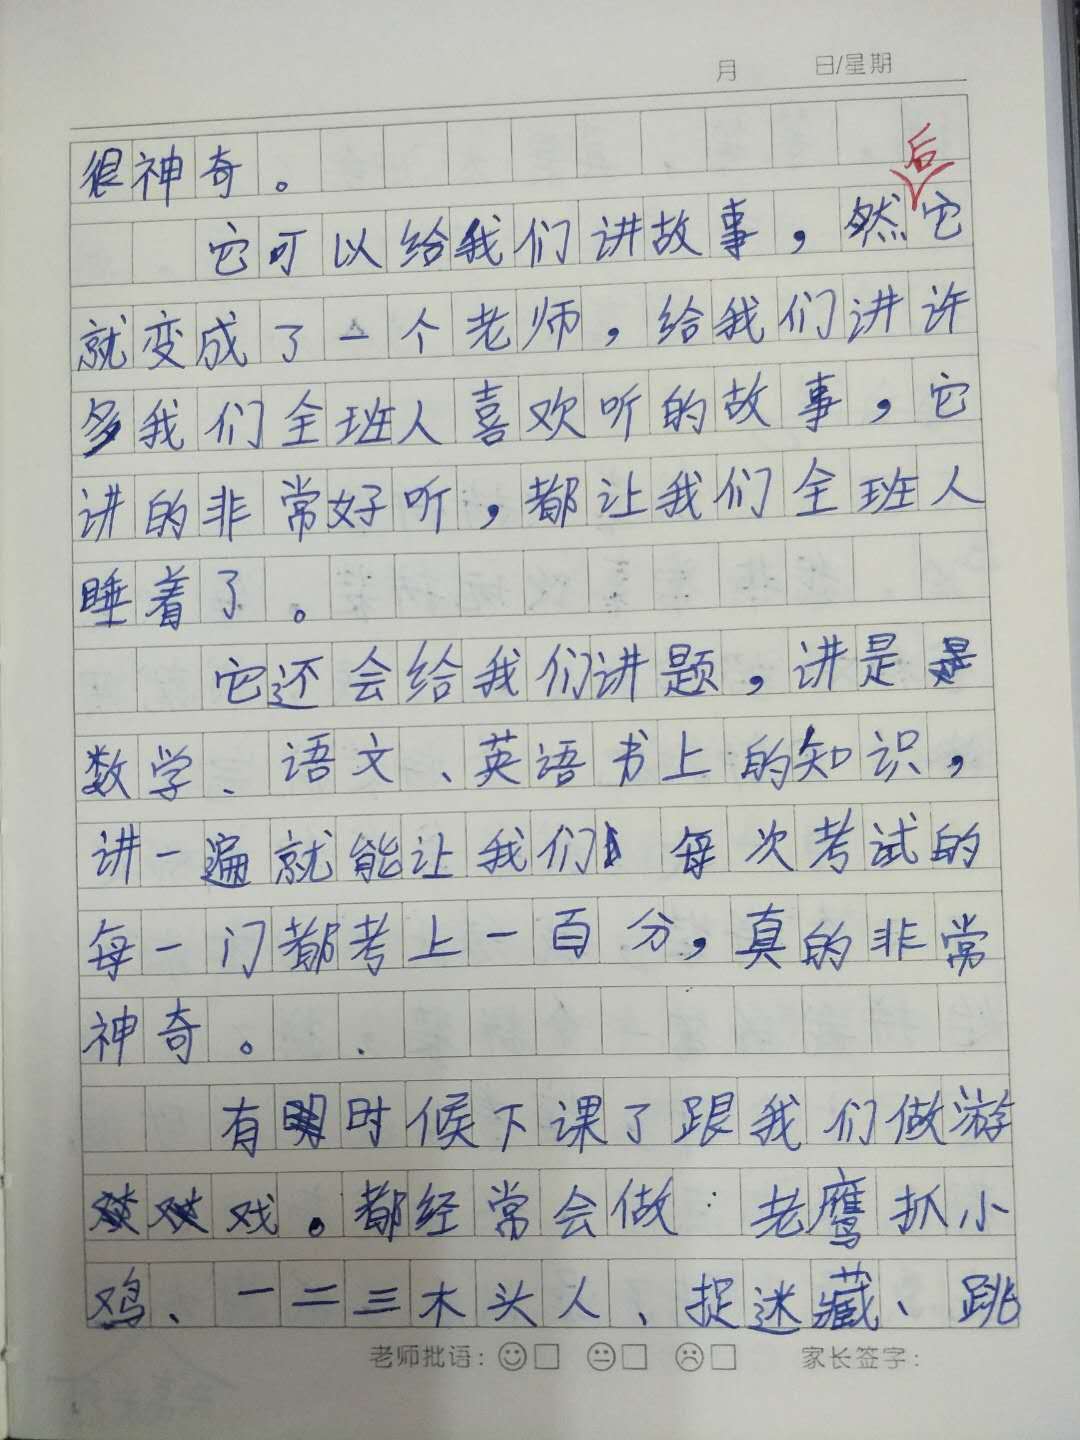 月 日/星期
很神奇。
后
它可以给我们讲故事，然它
就变成了一个老师，给我们讲许
多我们全班人喜欢听的故事，它
讲的非常好听，都让我们全班人
睡着了。
它还会给我们讲题，讲是
数学、语文、英语书上的知识，
讲一遍就能让我们每次考试的
每一门都考上一百分，真的非常
神奇。
有时候下课了跟我们做游
戏。都经常会做：老鹰抓小
鸡、一二三木头人、捉迷藏、跳
老师批语： 家长签字：